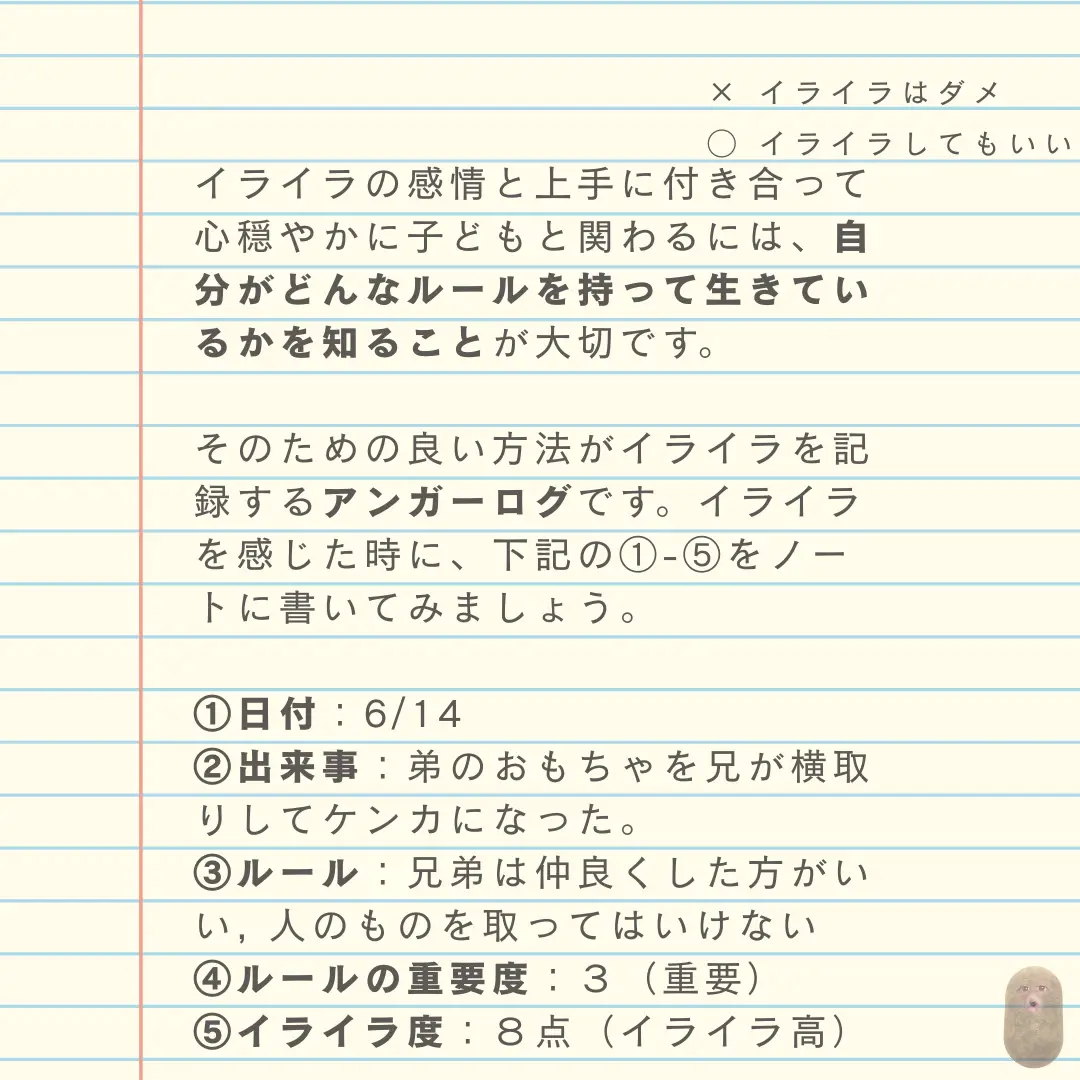 × イライラはダメ
○ イライラしてもいい
イライラの感情と上手に付き合って
心穏やかに子どもと関わるには、自
分がどんなルールを持って生きてい
るかを知ることが大切です。
そのための良い方法がイライラを記
録するアンガーログです。イライラ
を感じた時に、下記の①-⑤をノー
トに書いてみましょう。
①日付：6/14
②出来事：弟のおもちゃを兄が横取
りしてケンカになった。
③ルール：兄弟は仲良くした方がい
い, 人のものを取ってはいけない
④ルールの重要度：３（重要）
⑤イライラ度：８点（イライラ高）